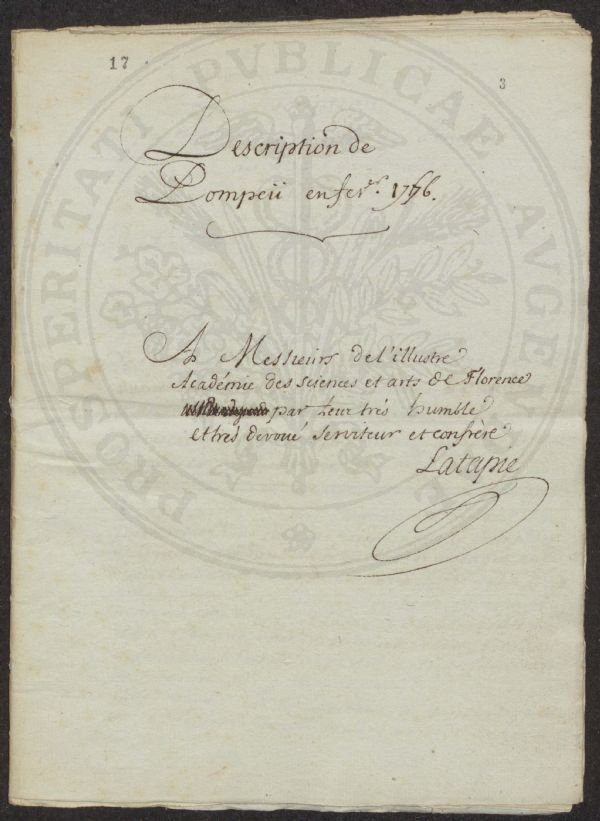 17
3
Description de
Pompeii en fevr. 1776.
A Messieurs de l'illustre
Académie des sciences et arts de Florence
par leur très humble
et très devoué serviteur et confrère
Latapie
PROSPERITATI PVBLICAE AVGENDAE